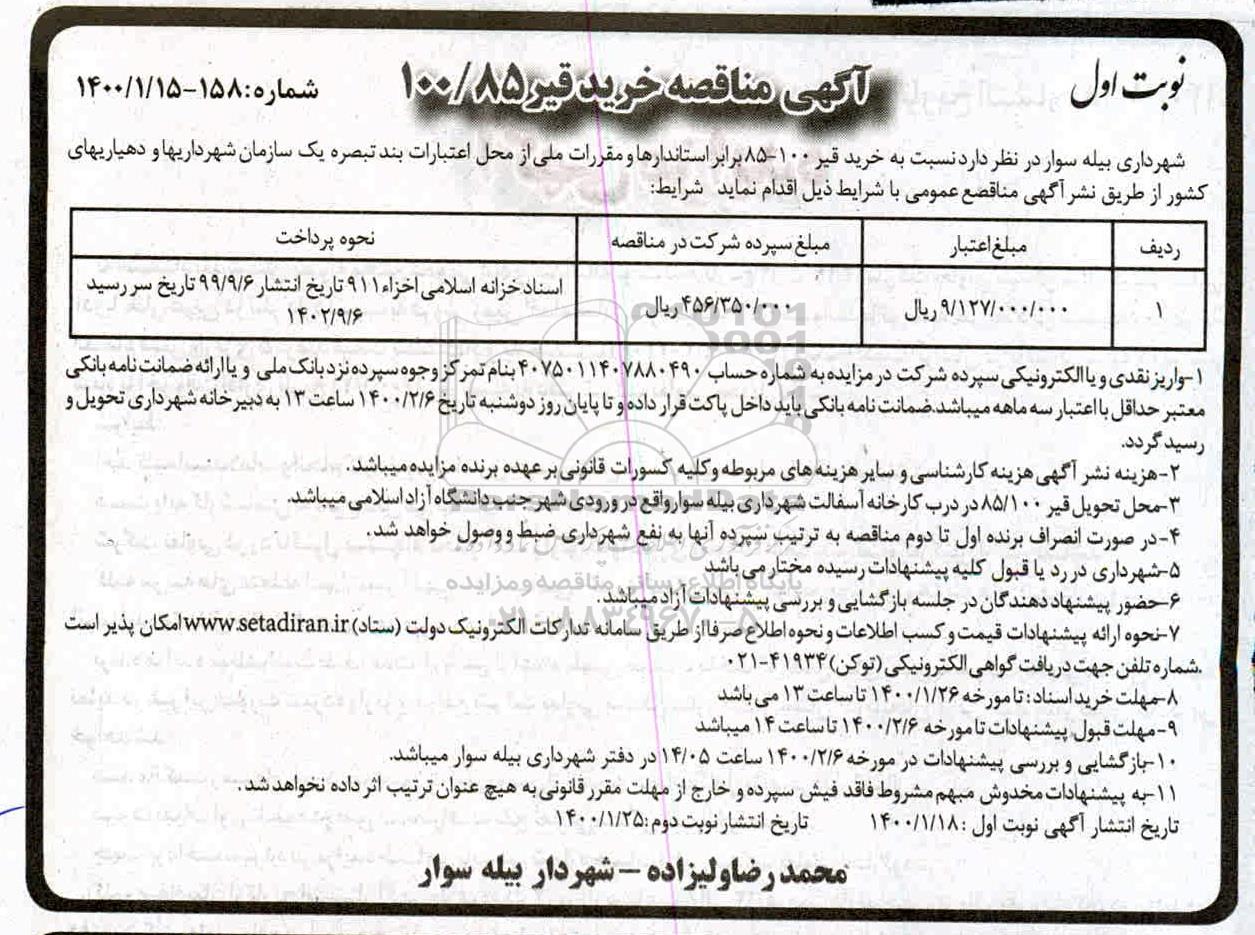 نوبت اول
آگهی مناقصه خرید قیر ۱۰۰/۸۵
شماره: ۱۵۸-۱۴۰۰/۱/۱۵
شهرداری بیله سوار در نظر دارد نسبت به خرید قیر ۱۰۰-۸۵ برابر استاندارها و مقررات ملی از محل اعتبارات بند تبصره یک سازمان شهرداریها و دهیاریهای
کشور از طریق نشر آگهی مناقصع عمومی با شرایط ذیل اقدام نماید شرایط:
ردیف مبلغ اعتبار مبلغ سپرده شرکت در مناقصه نحوه پرداخت
۱ ۹/۱۲۷/۰۰۰/۰۰۰ ریال ۴۵۶/۳۵۰/۰۰۰ ریال اسناد خزانه اسلامی اخزاء ۹۱۱ تاریخ انتشار ۹۹/۹/۶ تاریخ سر رسید
۱۴۰۲/۹/۶
۱-واریز نقدی و یا الکترونیکی سپرده شرکت در مزایده به شماره حساب ۴۰۷۵۰۱۱۴۰۷۸۸۰۴۹۰ بنام تمرکز وجوه سپرده نزد بانک ملی و یا ارائه ضمانت نامه بانکی
معتبر حداقل با اعتبار سه ماهه میباشد.ضمانت نامه بانکی باید داخل پاکت قرار داده و تا پایان روز دوشنبه تاریخ ۱۴۰۰/۲/۶ ساعت ۱۳ به دبیرخانه شهرداری تحویل و
رسید گردد.
۲-هزینه نشر آگهی هزینه کارشناسی و سایر هزینه های مربوطه و کلیه کسورات قانونی بر عهده برنده مزایده میباشد.
۳-محل تحویل قیر ۸۵/۱۰۰ در درب کارخانه آسفالت شهرداری بیله سوار واقع در ورودی شهر جنب دانشگاه آزاد اسلامی میباشد.
۴-در صورت انصراف برنده اول تا دوم مناقصه به ترتیب سپرده آنها به نفع شهرداری ضبط و وصول خواهد شد.
۵-شهرداری در رد یا قبول کلیه پیشنهادات رسیده مختار می باشد
پایگاه اطلاع رسانی مناقصه و مزایده
۶-حضور پیشنهاد دهندگان در جلسه بازگشایی و بررسی پیشنهادات آزاد میباشد.
۰۲۱-۸۸۳۴۹۶۷۰-۵
۷-نحوه ارائه پیشنهادات قیمت و کسب اطلاعات و نحوه اطلاع صرفا از طریق سامانه تدارکات الکترونیک دولت (ستاد) www.setadiran.ir امکان پذیر است
.شماره تلفن جهت دریافت گواهی الکترونیکی (توکن) ۴۱۹۳۴-۰۲۱
۸-مهلت خرید اسناد: تا مورخه ۱۴۰۰/۱/۲۶ تا ساعت ۱۳ می باشد
۹-مهلت قبول پیشنهادات تا مورخه ۱۴۰۰/۲/۶ تا ساعت ۱۴ میباشد
۱۰-بازگشایی و بررسی پیشنهادات در مورخه ۱۴۰۰/۲/۶ ساعت ۱۴/۰۵ در دفتر شهرداری بیله سوار میباشد.
۱۱-به پیشنهادات مخدوش مبهم مشروط فاقد فیش سپرده و خارج از مهلت مقرر قانونی به هیچ عنوان ترتیب اثر داده نخواهد شد.
تاریخ انتشار آگهی نوبت اول: ۱۴۰۰/۱/۱۸ تاریخ انتشار نوبت دوم: ۱۴۰۰/۱/۲۵
محمد رضا ولیزاده - شهردار بیله سوار